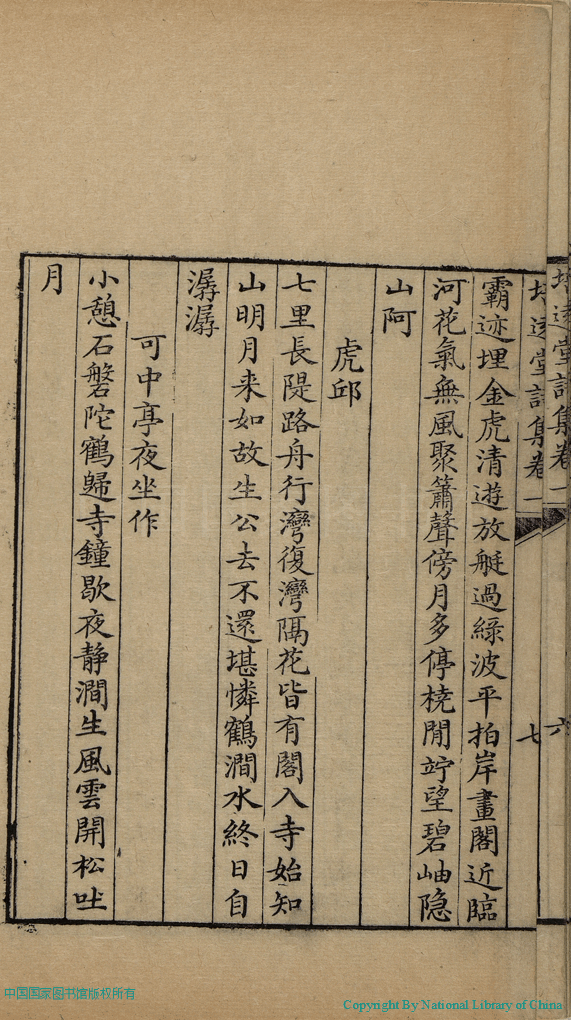 詩集卷一
六
詩集卷一
七
霸迹埋金虎清遊放艇過綠波平拍岸畫閣近臨
河花氣無風聚簫聲傍月多停橈閒竚望碧岫隐
山阿
虎邱
七里長隄路舟行灣復灣隔花皆有閣入寺始知
山明月来如故生公去不還堪憐鶴澗水終日自
潺潺
可中亭夜坐作
小憩石磐陀鶴歸寺鐘歇夜静澗生風雲開松吐
月
中国国家图书馆版权所有
Copyright By National Library of China